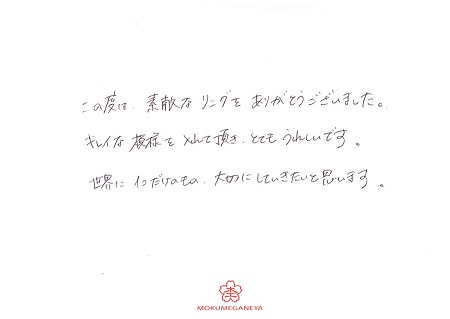 この度は、素敵なリングをありがとうございました。
キレイな模様を入れて頂き、とてもうれしいです。
世界に1つだけのもの、大切にしていきたいと思います。
MOKUMEGANEYA